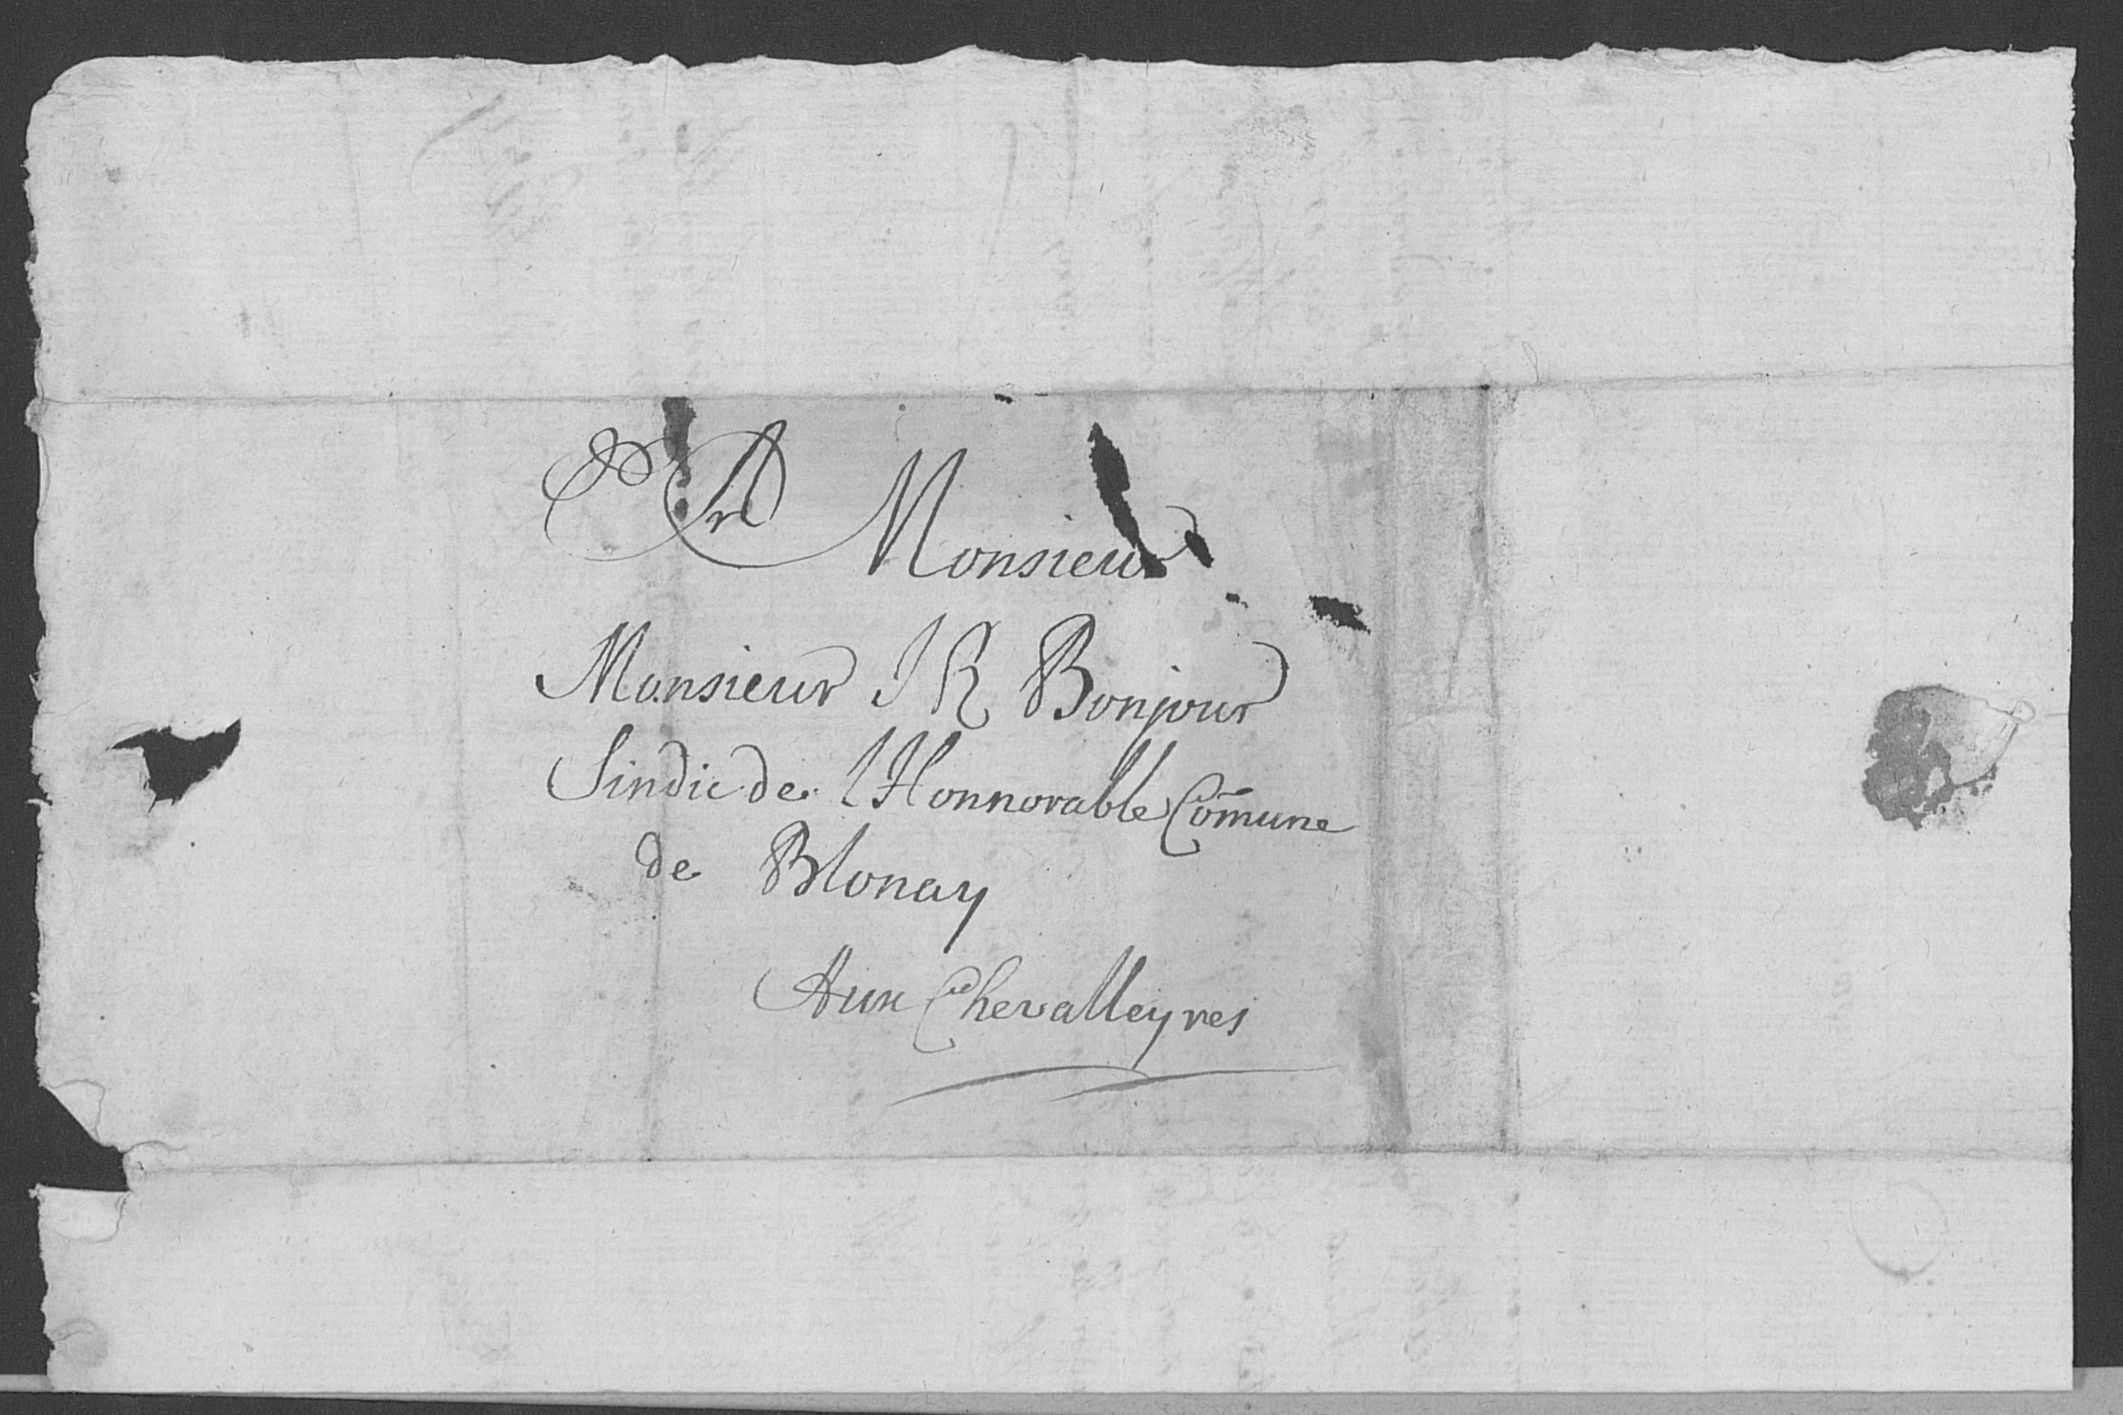 A Monsieur
Monsieur J R Bonjour
Sindic de lHonnorable Com̄une
de Blonay
Aux Chevalleyres